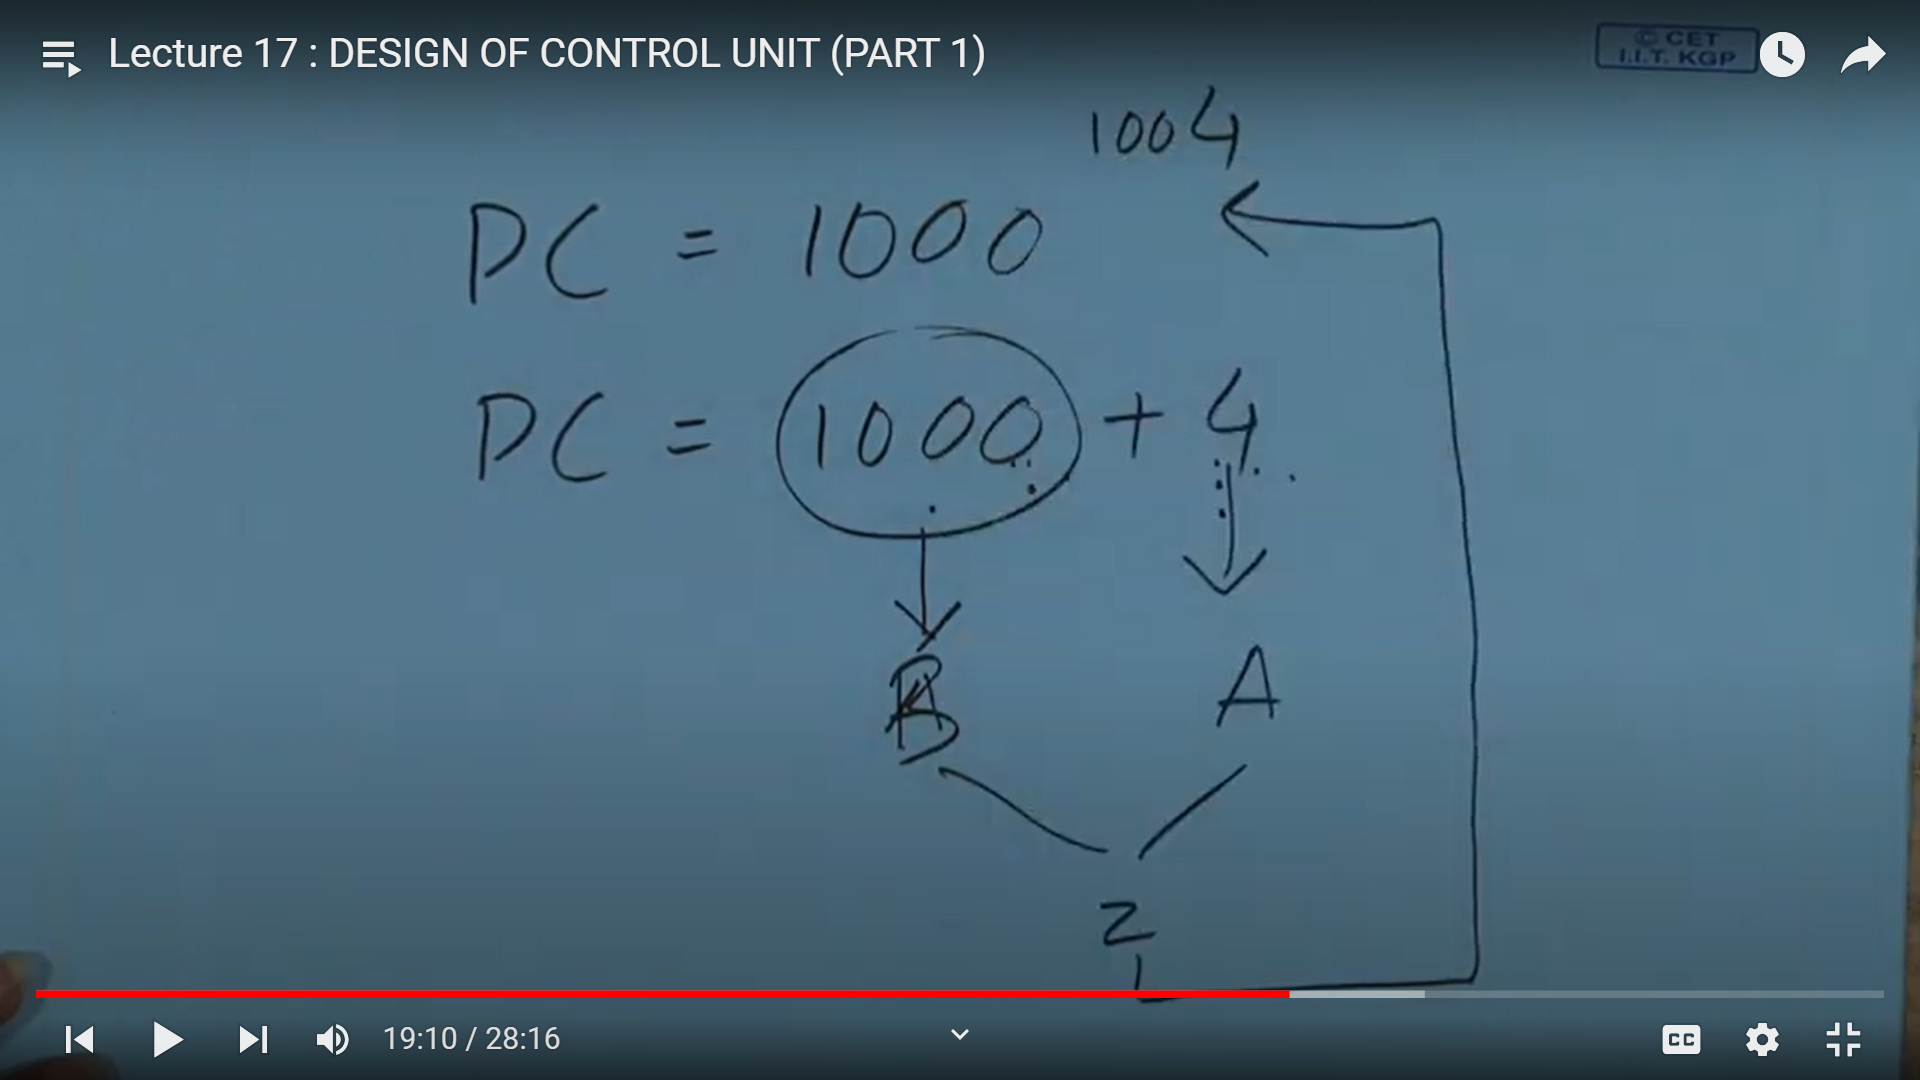 Lecture 17 : DESIGN OF CONTROL UNIT (PART 1)
© CET
I.I.T. KGP
1004
PC = 1000
PC = 1000 + 4
B A
Z
19:10 / 28:16
CC